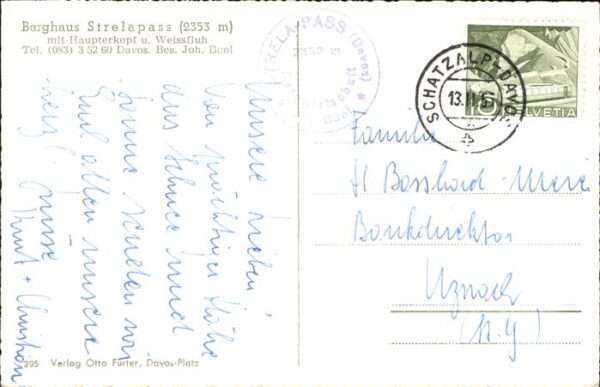 Berghaus Strelapass (2353 m)
mit Haupterkopf u. Weissfluh
Tel. (083) 3 52 60 Davos. Bes. Joh.
STRELA-PASS (Davos)
2353 m
SCHATZALP-DAVOS
13.
HELVETIA
Unsere Lieben!
Von prächtiger Höhe
aus Schnee und
Sonne senden wir
Euch allen unsere
herzl. Grüsse
+ Christian
Familie
H Bosshard-
Bankdirektor
Uznach
295 Verlag Otto Furter, Davos-Platz